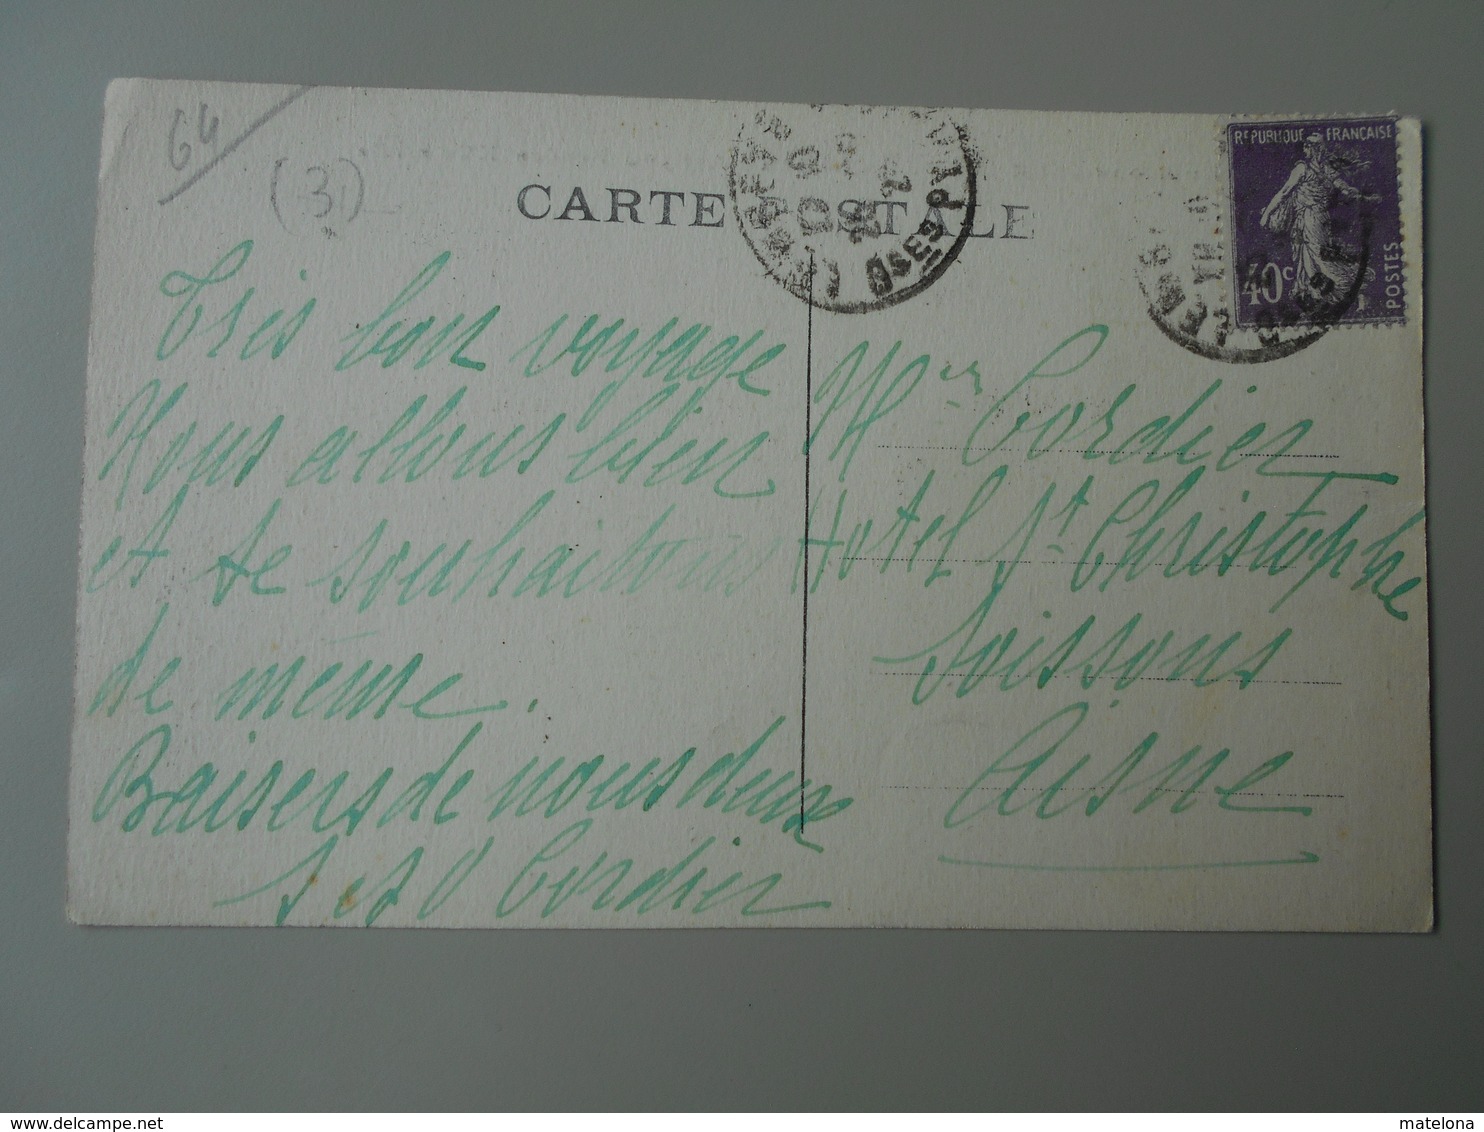 64
(31)
CARTE POSTALE
REPUBLIQUE FRANÇAISE
40c
POSTES
Très bon voyage
Nous allons bien
et te souhaitons
de même.
Baisers de nous deux
J et O Cordier
Mr Cordier
Hotel St Christophe
Soissons
Aisne
www.delcampe.net
matelona